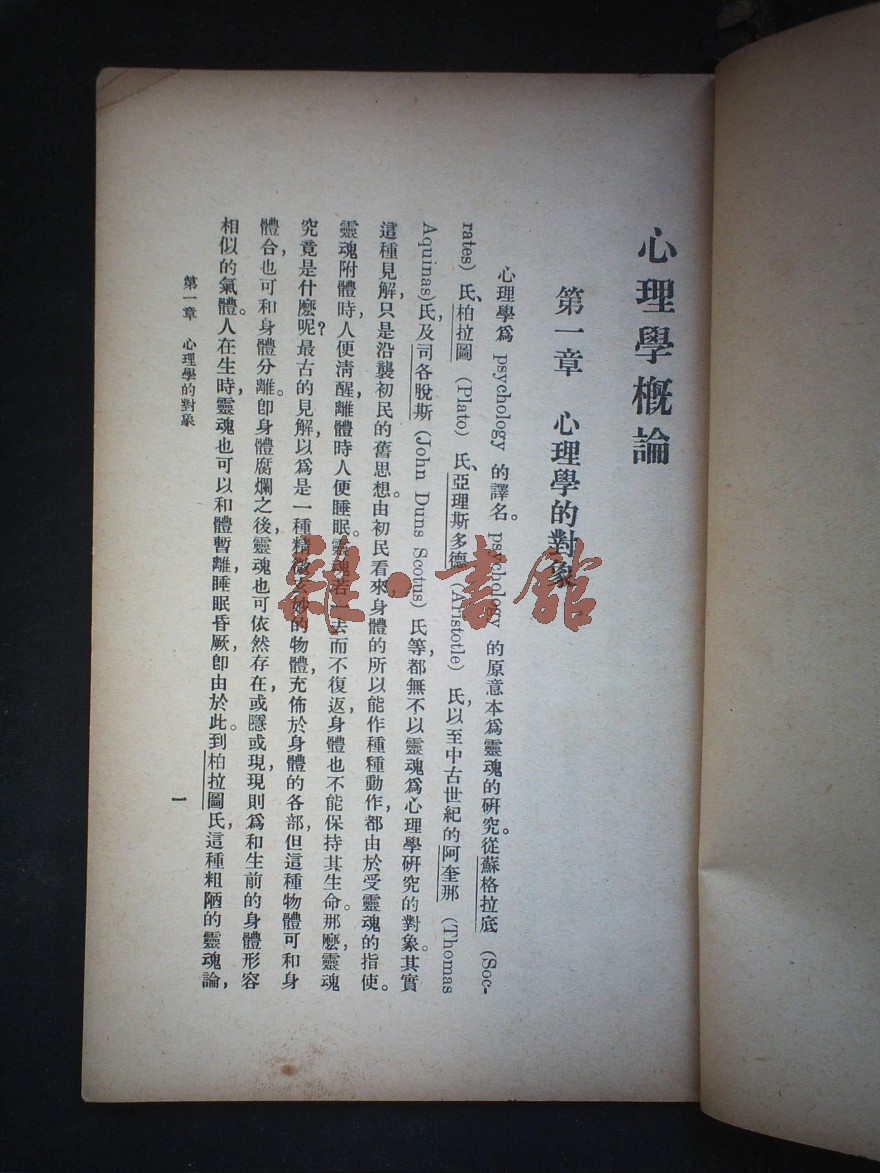 心理學概論
第一章 心理學的對象
心理學爲 psychology 的譯名。psychology 的原意本爲靈魂的研究。從蘇格拉底 (Soc-
rates) 氏、柏拉圖 (Plato) 氏、亞理斯多德 (Aristotle) 氏，以至中古世紀的阿奎那 (Thomas
Aquinas)氏，及司各脫斯 (John Duns Scotus) 氏等，都無不以靈魂爲心理學研究的對象。其實
這種見解，只是沿襲初民的舊思想。由初民看來，身體的所以能作種種動作，都由於受靈魂的指使。
靈魂附體時，人便清醒，離體時人便睡眠。靈魂若一去而不復返，身體也不能保持其生命。那麼，靈魂
究竟是什麼呢？最古的見解，以爲是一種精微玄妙的物體，充佈於身體的各部，但這種物體可和身
體合，也可和身體分離。卽身體腐爛之後，靈魂也可依然存在，或隱或現，現則爲和生前的身體形容
相似的氣體。人在生時，靈魂也可以和體暫離，睡眠昏厥，卽由於此。到柏拉圖氏，這種粗陋的靈魂論，
第一章 心理學的對象
一
雜·書館